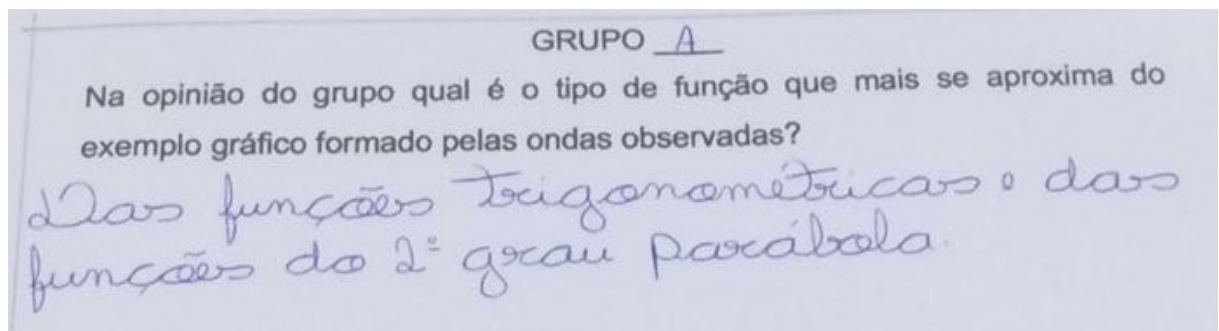 GRUPO A
Na opinião do grupo qual é o tipo de função que mais se aproxima do
exemplo gráfico formado pelas ondas observadas?
Das funções trigonométricas e das
funções do 2º grau parábola.